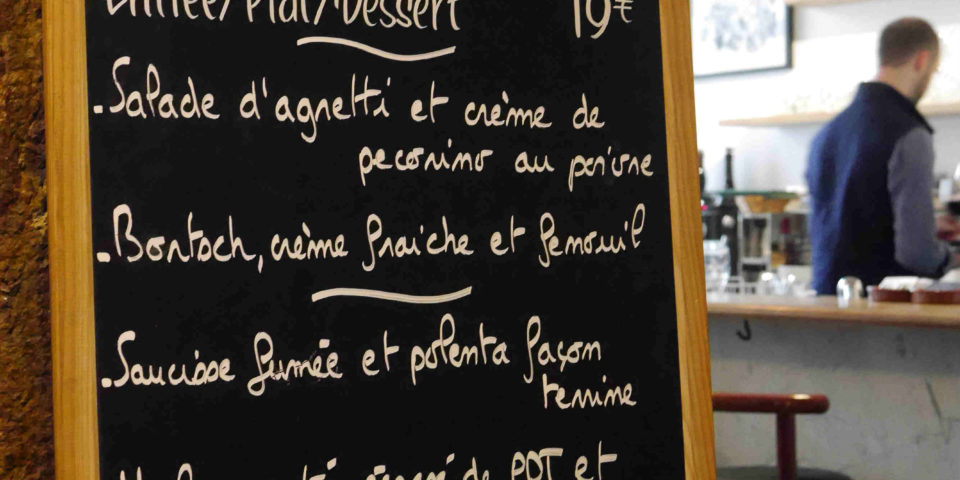 Entrée/Plat/Dessert 19€
.Salade d'agnetti et crème de
pecorino au poivre
.Bortsch, crème fraiche et fenouil
.Saucisse fumée et polenta façon
terrine
de PDT et